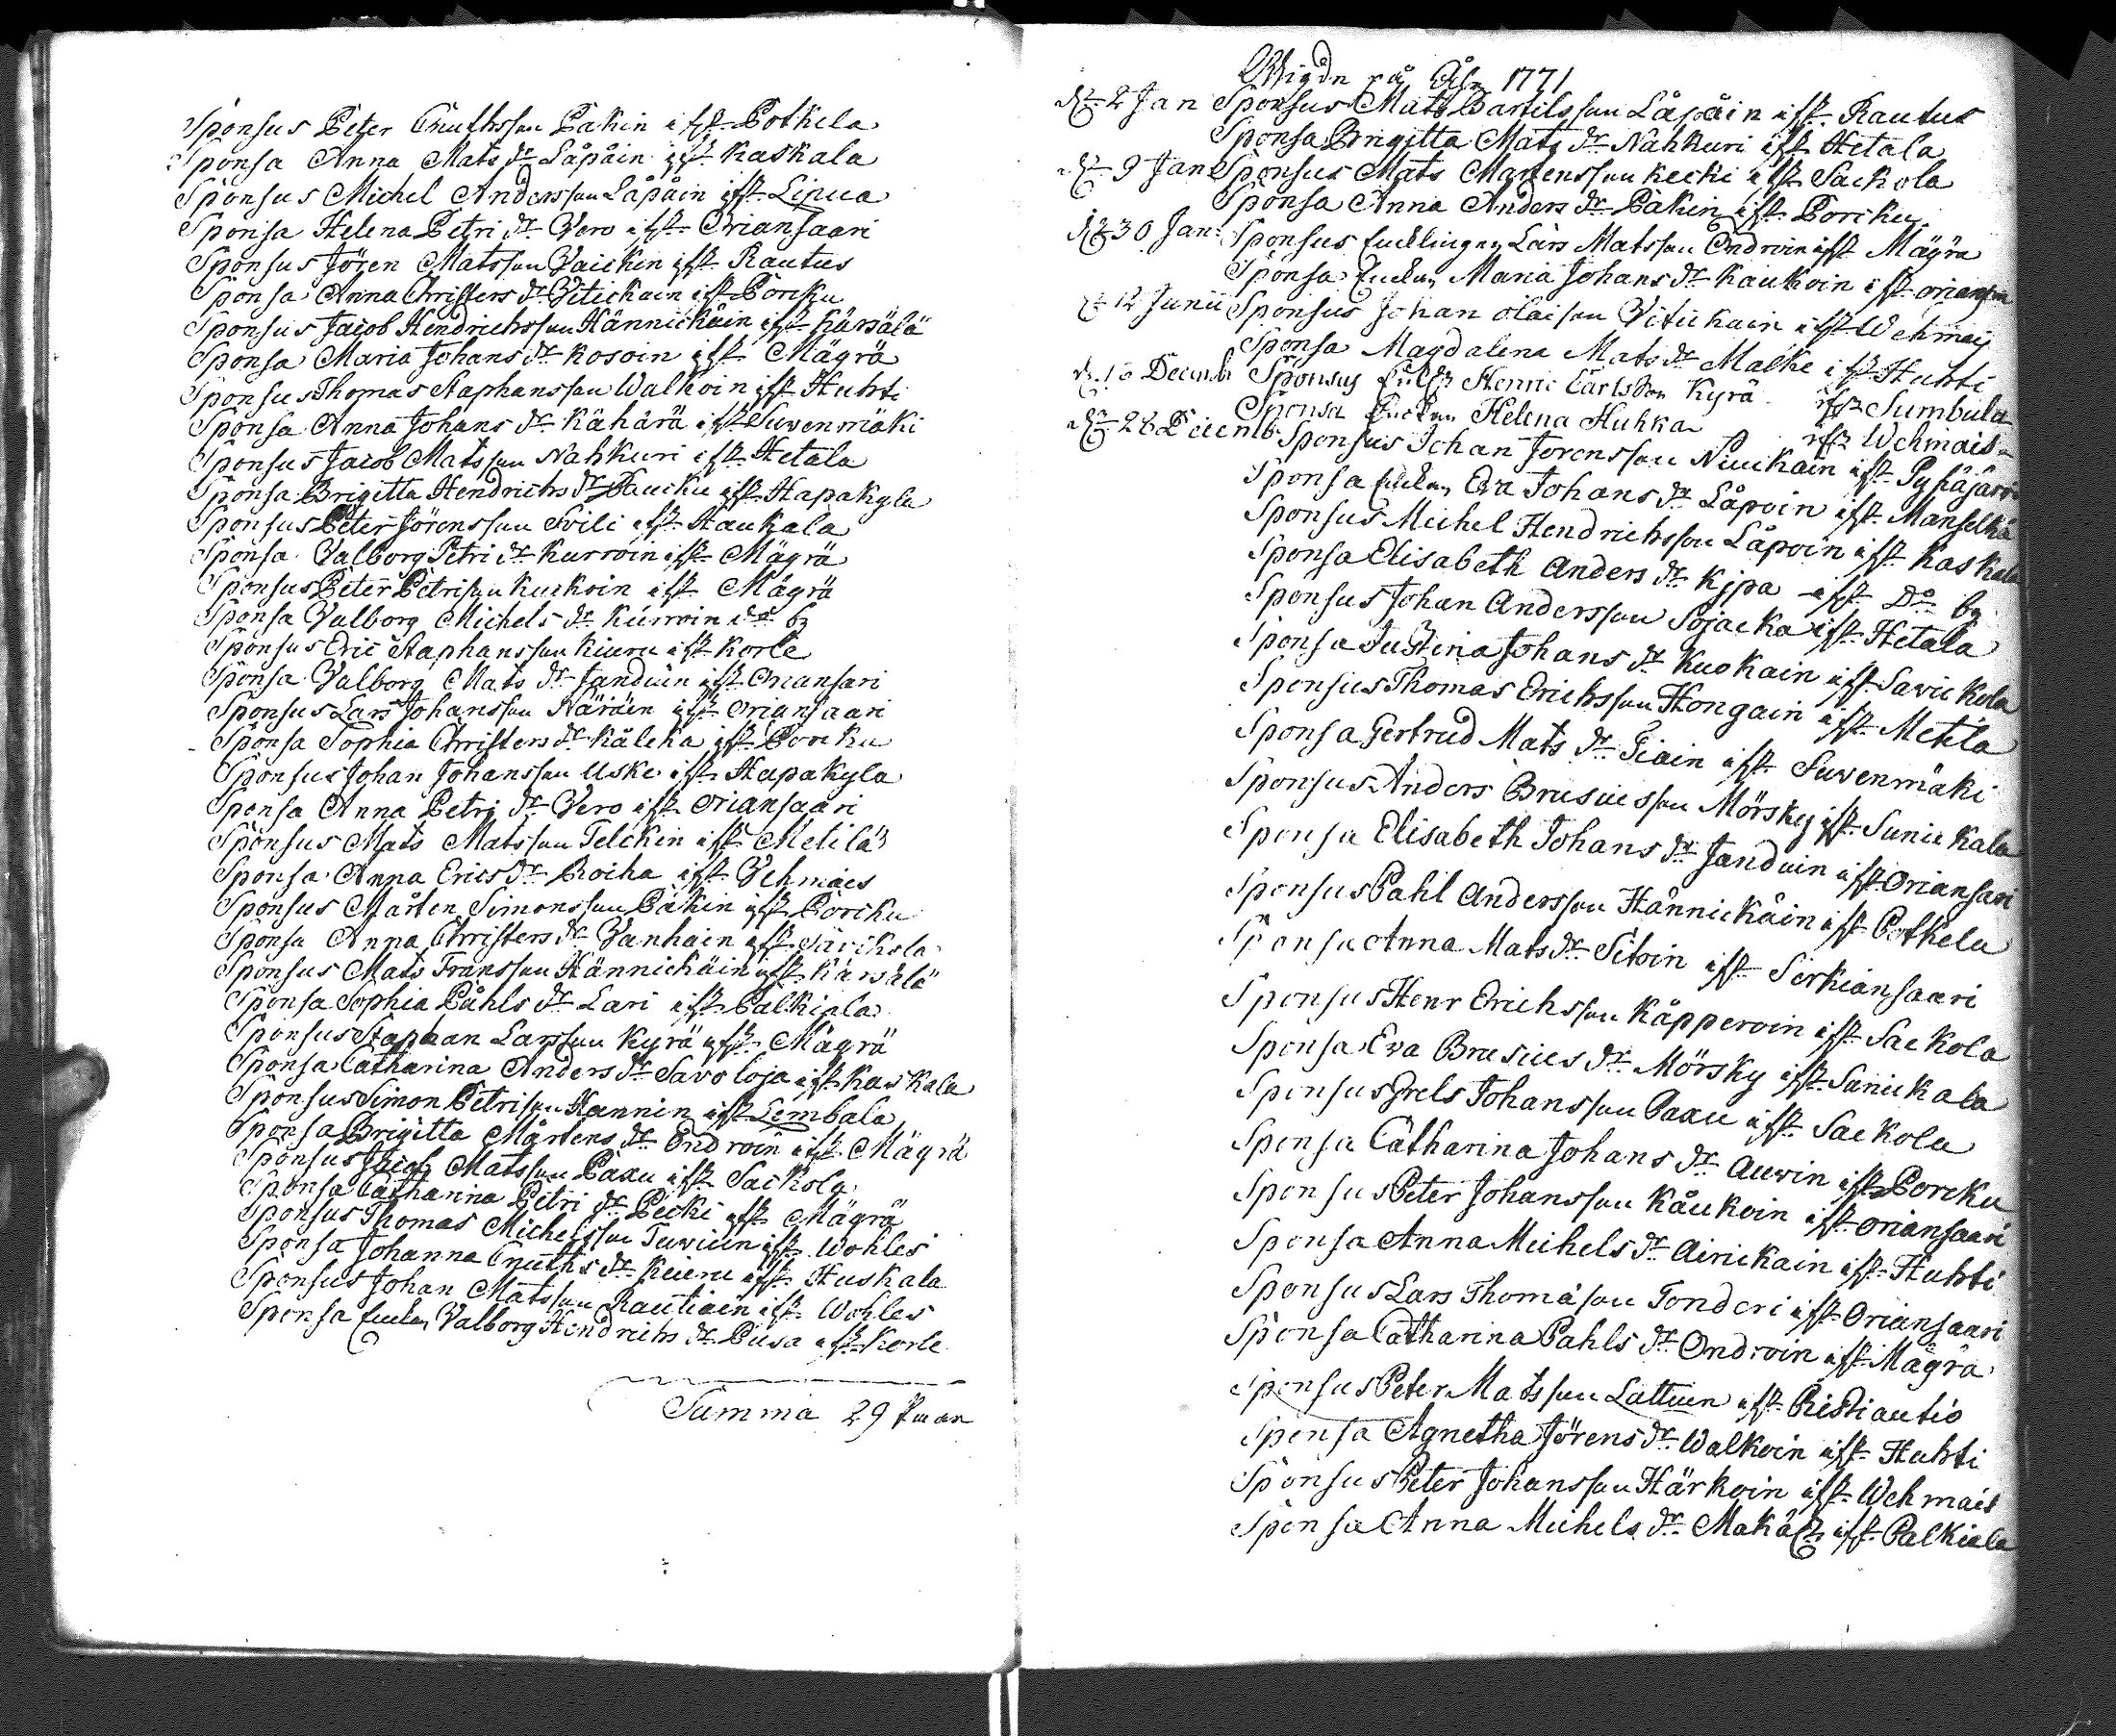 Sponsus Peter Cnuthsson Päkin ifr. Potkela
Sponsa Anna Mats dr Låpåin ifr. Kaskala
Sponsus Michel Andersson Låpåin ifr. Lipua
Sponsa Helena Petri dr Vero ifr. Oriansaari
Sponsus Jören Matsson Vaickin ifr. Rautus
Sponsa Anna Christers dr Vitickain ifr. Porcku
Sponsus Jacob Hendrichsson Hännickäin ifr. Kärsälä
Sponsa Maria Johans dr Kosoin ifr. Mägrä
Sponsus Thomas Staphansson Walkoin ifr. Huhti
Sponsa Anna Johans dr Kähärä ifr. Suwenmäki
Sponsus Jacob Matsson Nahkuri ifr. Hetala
Sponsa Brigitta Hendrichs dr Paucku ifr. Hapakyla
Sponsus Peter Jörensson Svili ifr. Haukala
Sponsa Valborg Petri dr Kurroin ifr. Mägrä
Sponsus Peter Petrison Kuckoin ifr. Mägrä
Sponsa Valborg Michels dr Kurroin do by
Sponsus Eric Staphansson Kiuru ifr. Korle
Sponsa Valborg Mats dr Janduin ifr. Oriansari
Sponsus Lars Johansson Näräin ifr. Oriansaari
Sponsa Sophia Christers dr Kåleka ifr. Porcku
Sponsus Johan Johansson Uski ifr. Hapakyla
Sponsa Anna Petri dr Vero ifr. Oriansaari
Sponsus Mats Matsson Telckin ifr. Metilä
Sponsa Anna Erics dr Roiha ifr. Vehmaes
Sponsus Mårten Simonsson Päkin ifr. Porcku
Sponsa Anna Christers dr Vanhain ifr. Savickola
Sponsus Mats Fransson Hännickäin ifr. Kärsälä
Sponsa Sophia Påhls dr Lari ifr. Palkiala
Sponsus Staphan Larsson Kyrä ifr. Mägrä
Sponsa Catharina Anders dr Savoloja ifr. Kaskala
Sponsus Simon Petrison Hannin ifr. Lembala
Sponsa Brigitta Mårtens dr Ondroin ifr. Mägrä
Sponsus Jacob Matsson Paxu ifr. Sackola
Sponsa Catharina Petri dr Pecki ifr. Mägrä
Sponsus Thomas Michelsson Tuwiun ifr. Wohles
Sponsa Johanna Cnuths dr Kiuru ifr. Huskala
Sponsus Johan Matsson Rautiain ifr. Wohles
Sponsa Enckan Valborg Hendrichs dr Pusa ifr. Korle
Summa 29 Paar
Wigde på Åhr 1771
d. 2 Jan Sponsus Mats Bartilsson Låpåin ifr. Rautus
Sponsa Brigitta Mats dr Nahkuri ifr. Hetala
d. 9 Jan Sponsus Mats Martensson Kecki ifr. Sackola
Sponsa Anna Anders dr Päkin ifr. Porcku
d. 30 Jan: Sponsus Encklingen Lars Matsson Ondroin ifr. Mägra
Sponsa Enckan Maria Johans dr Kaukoin ifr.
d. 12 Junii Sponsus Johan Olaison Vitickain ifr. Wehmais
Sponsa Magdalena Mats dr Malke ifr. Huhti
Decemb Sponsus Henric Carlsson Kyrä ifr. Sumbula
Sponsa Enckan Helena Huhka ifr. Wehmais
d. 28 Decemb. Sponsus Johan Jorensson Niuckain ifr. Pyhäjärvi
Sponsa Enckan Eva Johans dr Låpoin ifr. Manselkä
Sponsus Michel Hendrichsson Låpoin ifr. Kaskala
Sponsa Elisabeth Anders dr Kjpa ifr. Do by
Sponsus Johan Andersson Sojacka ifr. Hetala
Sponsa Justina Johans dr Kuokain ifr. Savickola
Sponsus Thomas Erichsson Hongain ifr. Metila
Sponsa Gertrud Mats dr Tiain ifr. Suwenmäki
Sponsus Anders Brusiusson Mörsky ifr. Sunickala
Sponsa Elisabeth Johans dr Janduin ifr. Oriansari
Sponsus Pahl Andersson Hånnickåin ifr. Potkela
Sponsa Anna Mats dr Sitoin ifr. Serkiansaari
Sponsus Henr Erichsson Kåpperoin ifr. Sackola
Sponsa Eva Brusius dr Mörsky ifr. Sunickala
Sponsus Grels Johansson Paxu ifr. Sackola
Sponsa Catharina Johans dr Auwin ifr. Porcku
Sponsus Peter Johansson Kåukoin ifr. Oriansaari
Sponsa Anna Michels dr Airickain ifr. Huhti
Sponsus Lars Thomason Tonderi ifr. Oriansaari
Sponsa Catharina Pahls dr Ondroin ifr. Mägra
Sponsus Peter Matsson Lattuin ifr. Ristiautio
Sponsa Agnetha Jörens dr Walkoin ifr. Huhti
Sponsus Peter Johansson Härkoin ifr. Wehmais
Sponsa Anna Michels dr ifr. Palkiala